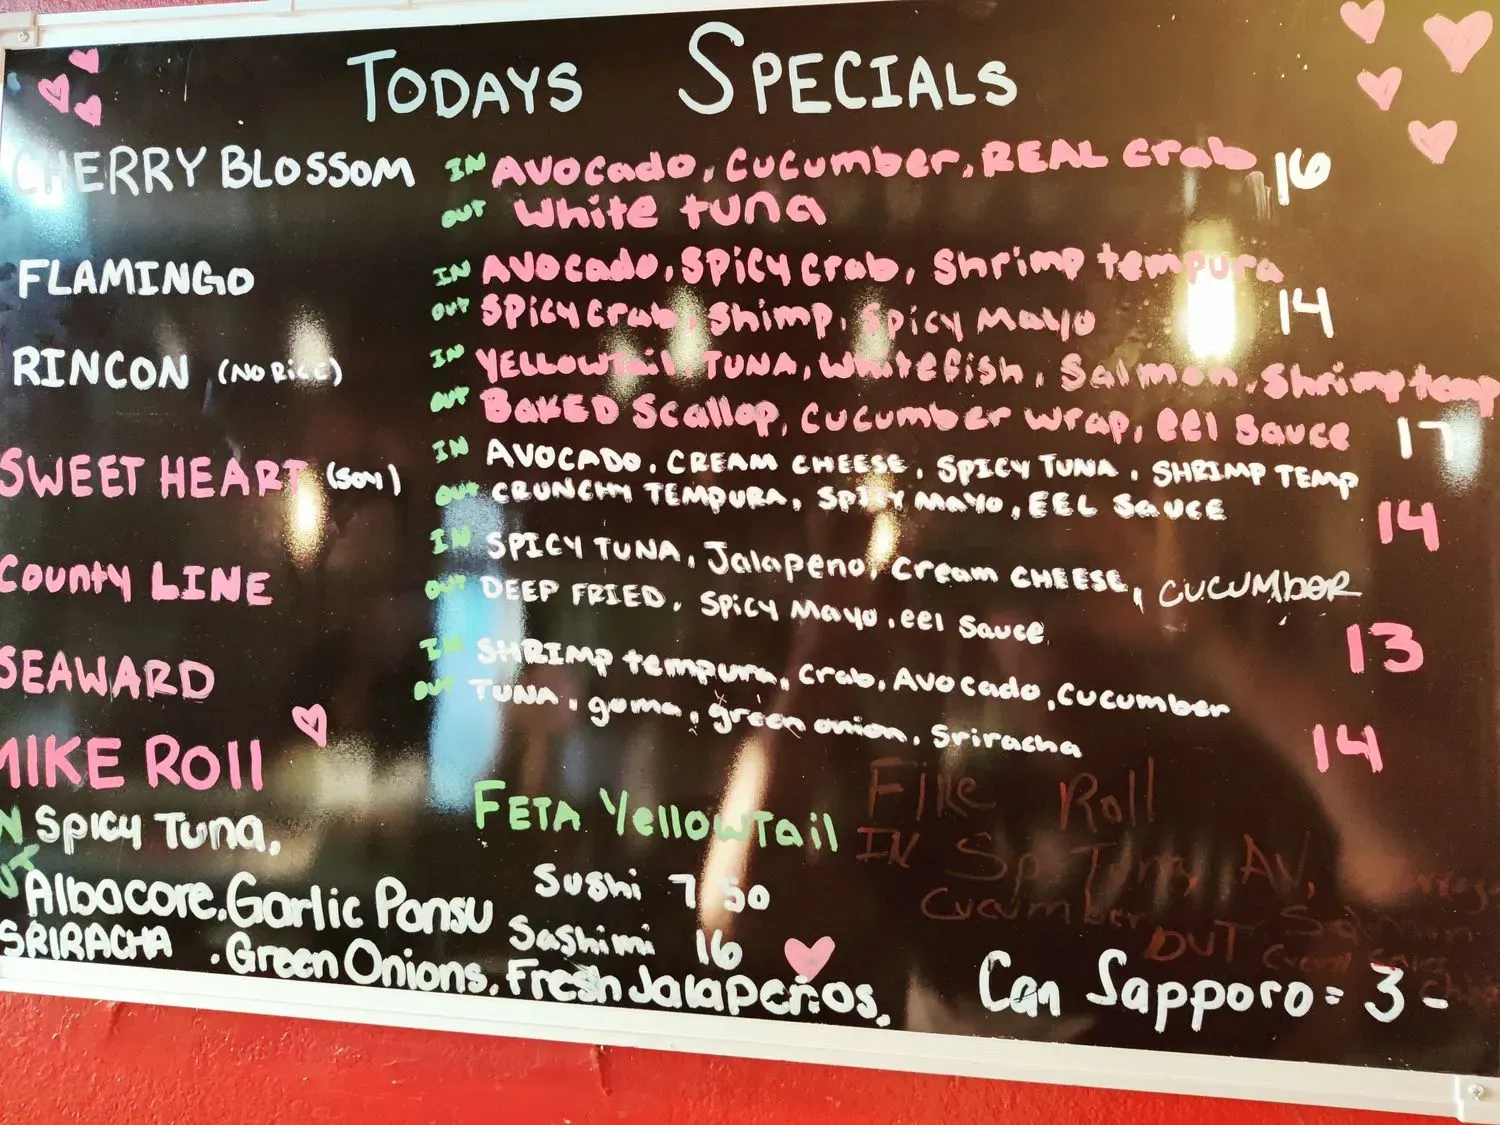 TODAYS SPECIALS
CHERRY BLOSSOM IN AVOCADO, CUCUMBER, REAL Crab 16
OUT White tuna
FLAMINGO IN AVOCADO, SPICY Crab, Shrimp tempura
OUT SPICY Crab, Shimp, Spicy Mayo 14
RINCON (NO RICE) IN YELLOWTail, TUNA, Whitefish, Salmon, Shrimp temp
OUT BAKED Scallop, cucumber wrap, eel Sauce 17
SWEET HEART (SOY) IN AVOCADO, CREAM CHEESE, SPICY TUNA, SHRIMP TEMP
OUT CRUNCHY TEMPURA, SPICY MAYO, EEL SAUCE 14
County LINE IN SPICY TUNA, Jalapeno, Cream CHEESE, CUCUMBER
OUT DEEP FRIED, SPICY Mayo, eel Sauce 13
SEAWARD IN SHRIMP tempura, Crab, Avocado, cucumber
OUT TUNA, goma, green onion, Sriracha 14
MIKE Roll
IN Spicy Tuna,
OUT Albacore, Garlic Ponsu
SRIRACHA, Green Onions, Fresh Jalapeños,
FETA YellowTail
Sushi 7 50
Sashimi 16
Roll
IN Sp Tuna, AV,
Cucumber OUT
Can Sapporo = 3 -